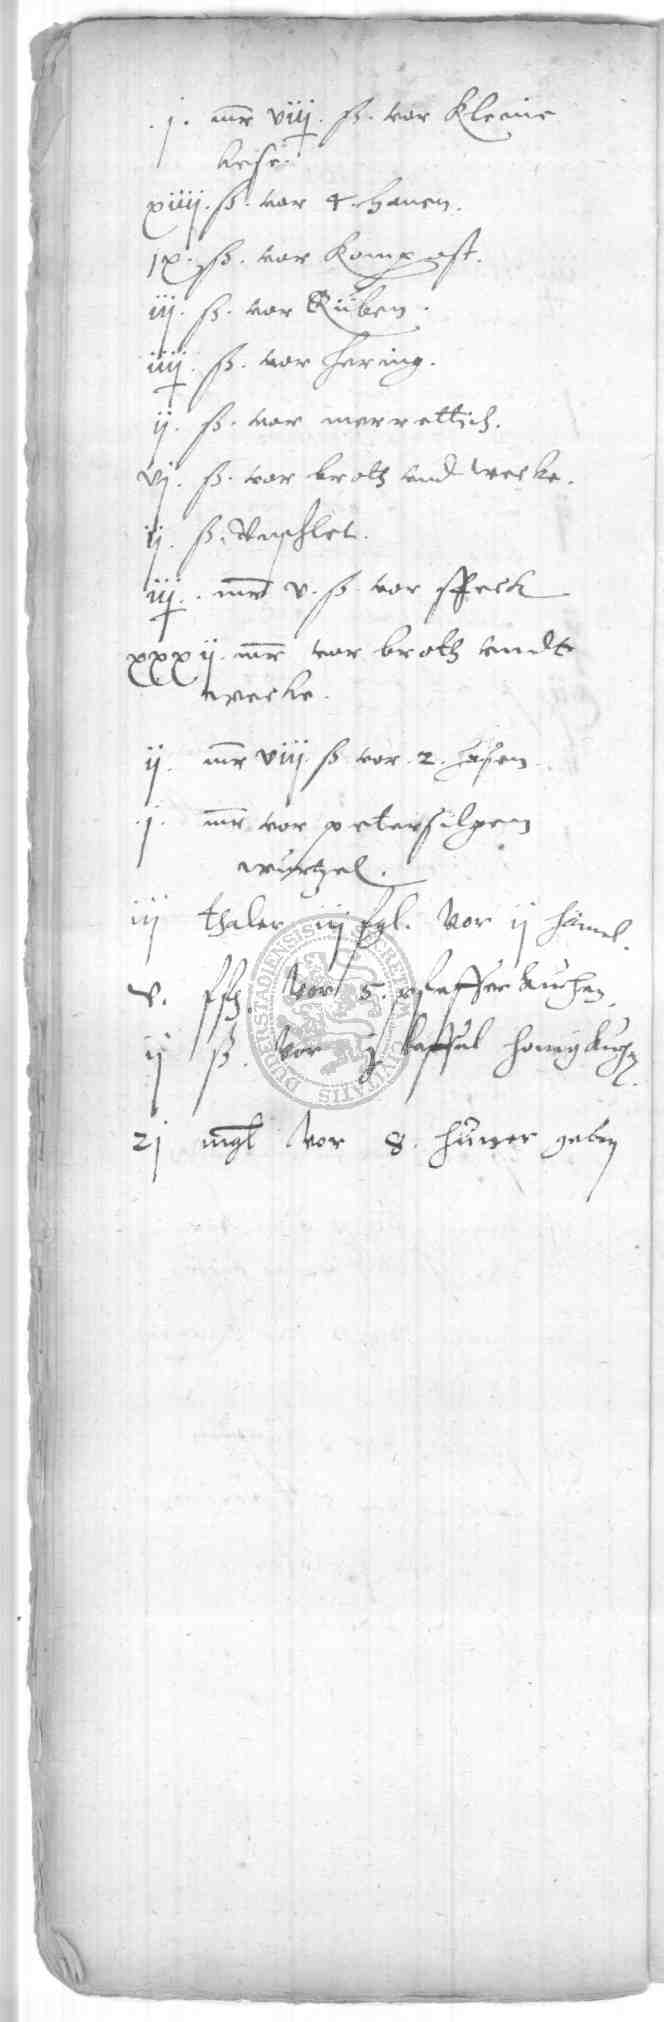 .j. mr viiij. ß. vor kleine
kese.
xiiij. ß. vor 4. hanen.
ix. ß. vor kompost.
iij. ß. vor Rüben.
iiij. ß. vor hering.
ij. ß. vor merrettich.
vj. ß. vor broth vnd wecke.
ij. ß.
iij. mr v. ß. vor speck
xxxij. mr vor broth vndt
wecke.
ij. mr viij. ß vor .2. hasen
.j. mr vor petersilgen
wurtzel.
iij thaler iij fgl. Vor ij hamel.
v. ßß. Vor 5. pfefferkuchen.
ij ß. Vor honigkuchen
2j mgl Vor 8. hüner geben
SECRETUM CIVITATIS DUDERSTADIENSIS